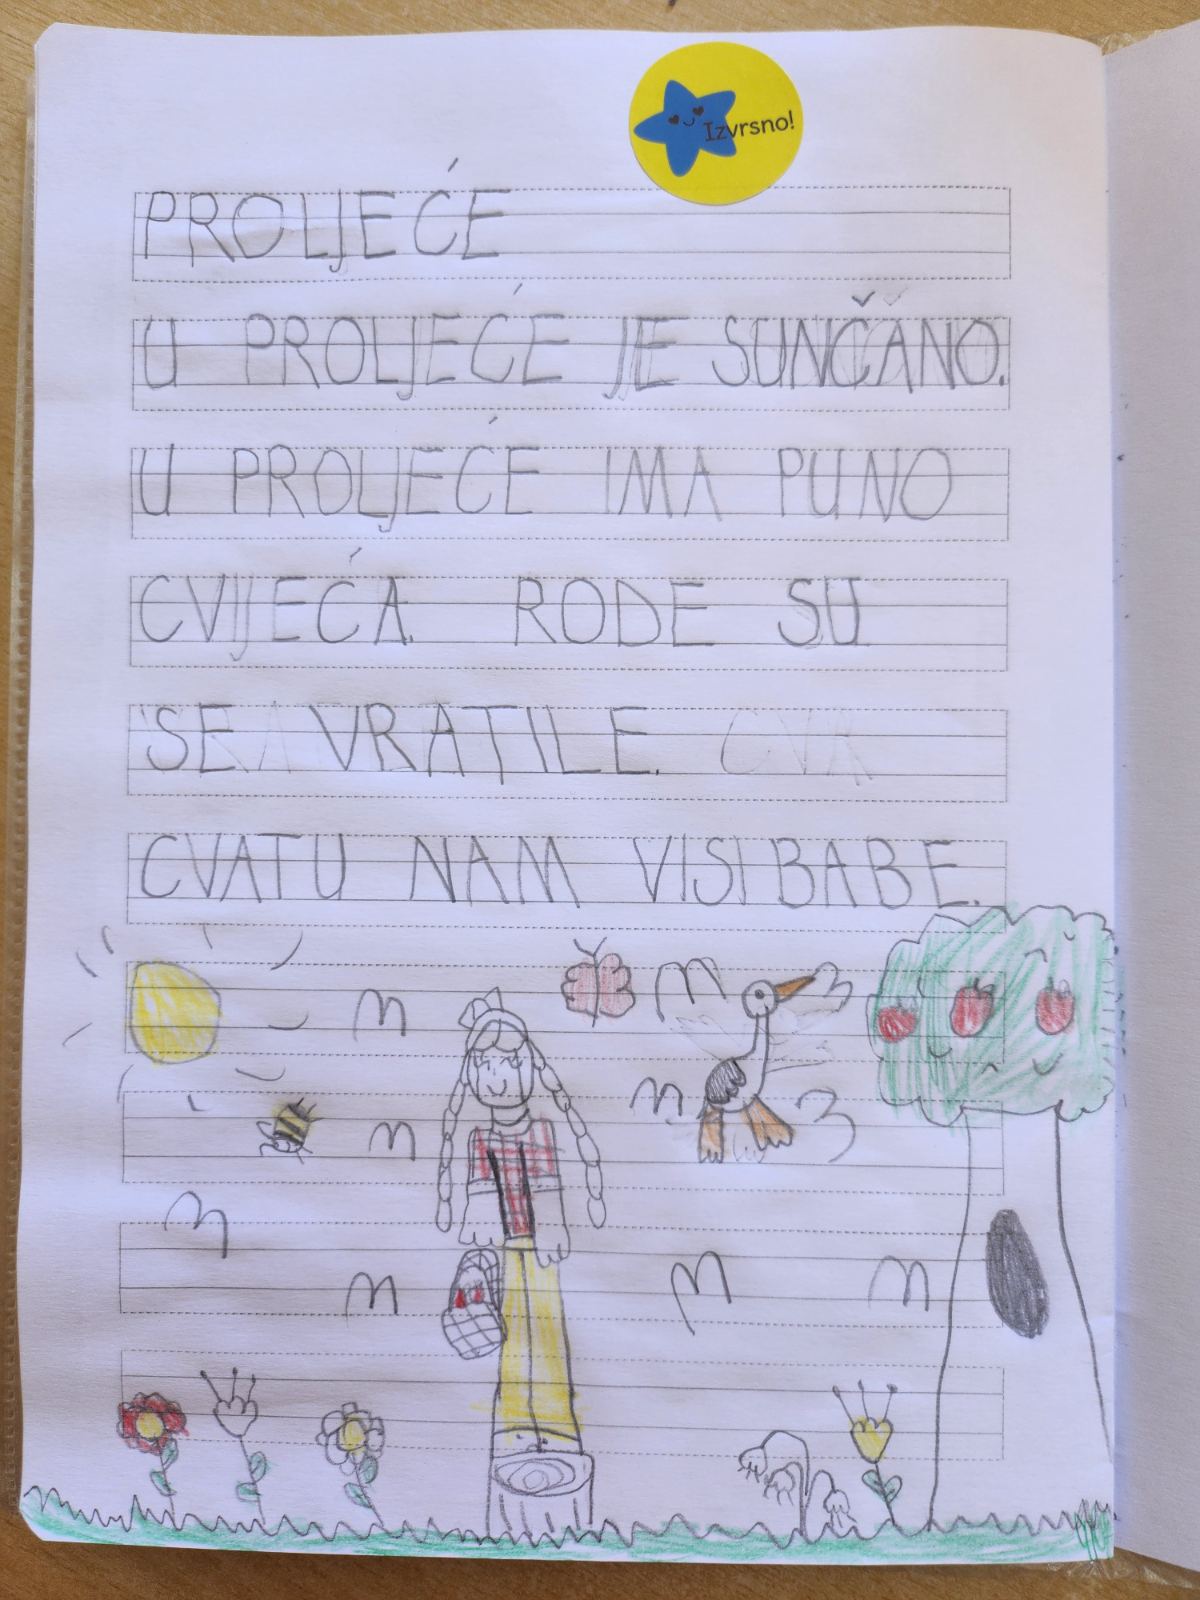 Izvrsno!
PROLJEĆE
U PROLJEĆE JE SUNČANO.
U PROLJEĆE IMA PUNO
CVIJEĆA. RODE SU
SE VRATILE.
CVATU NAM VISIBABE.